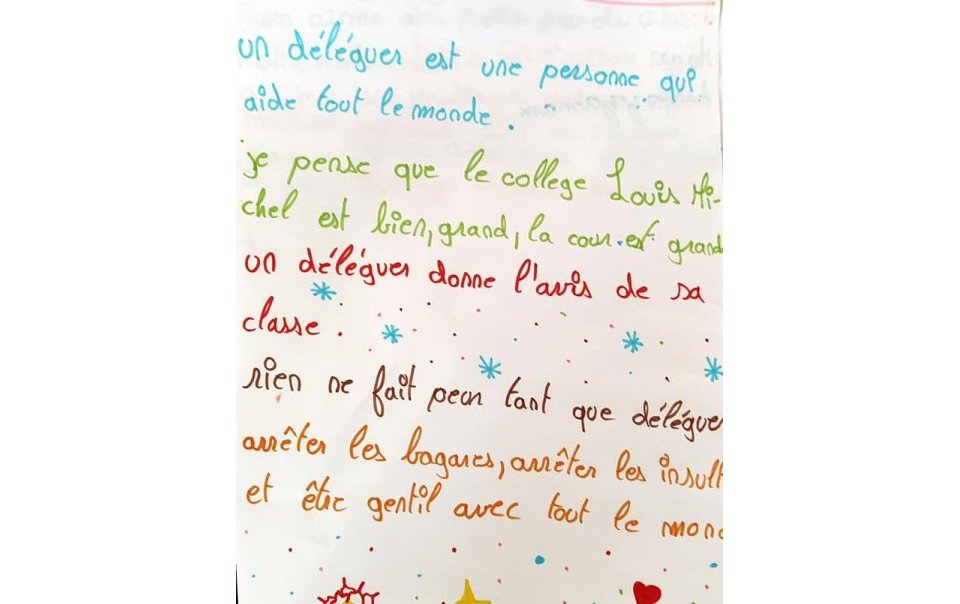 un déléguer est une personne qui
aide tout le monde.
je pense que le college Louis Mi-
chel est bien, grand, la cour est grand
un déléguer donne l'avis de sa
classe.
rien ne fait peur tant que déléguer
arrêter les bagares, arrêter les insult
et être gentil avec tout le mond